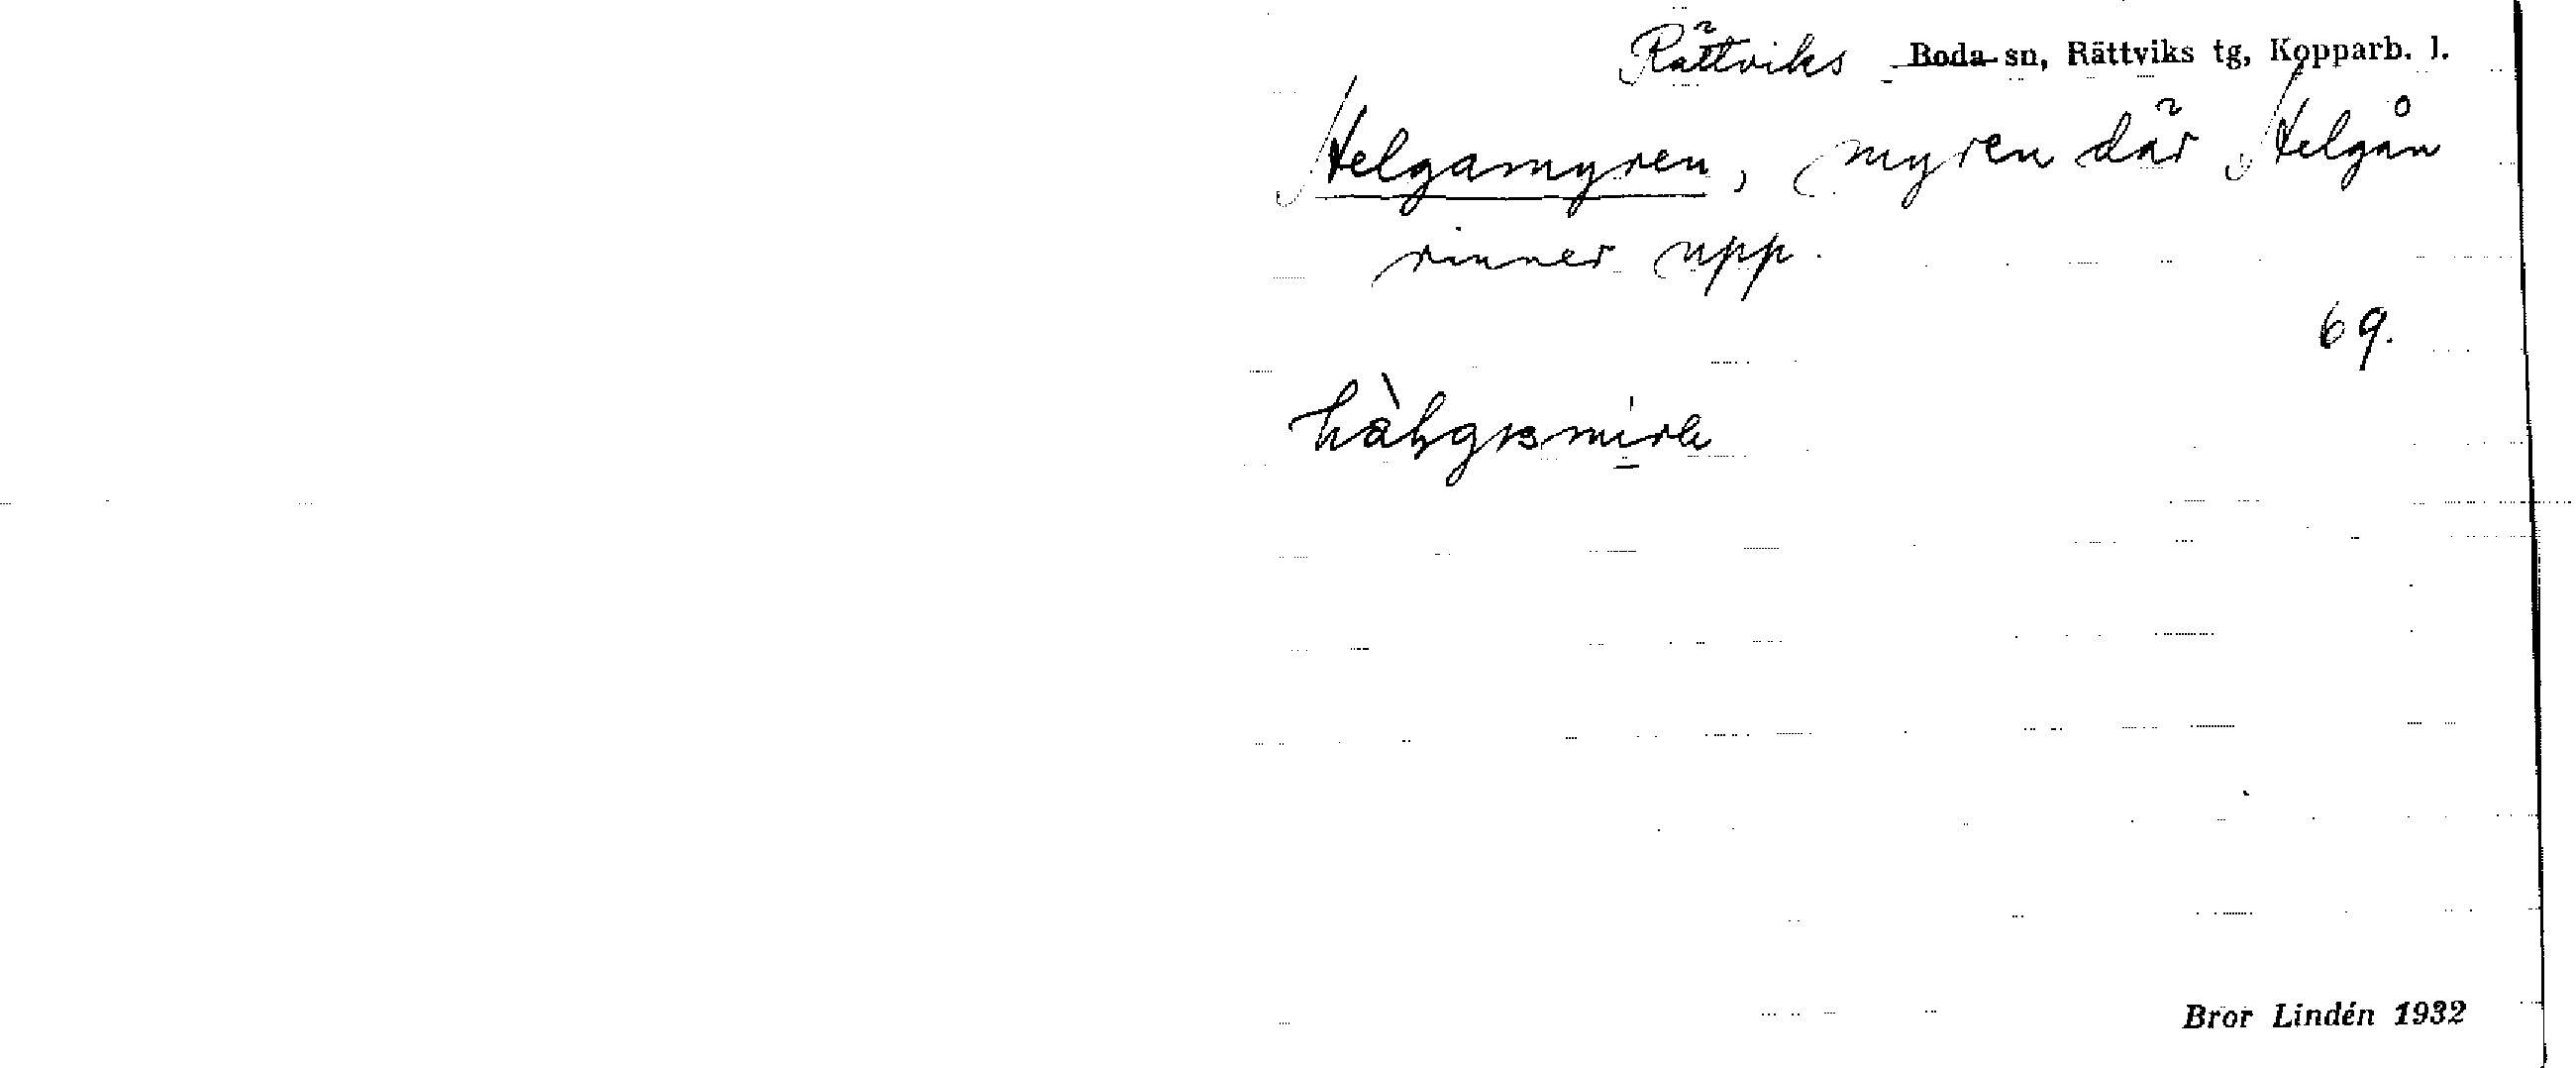 Rättviks Boda sn, Rättviks tg, Kopparb. l.
Helgamyren, myren där Helgån
rinner upp.
69.
Bror Lindén 1932